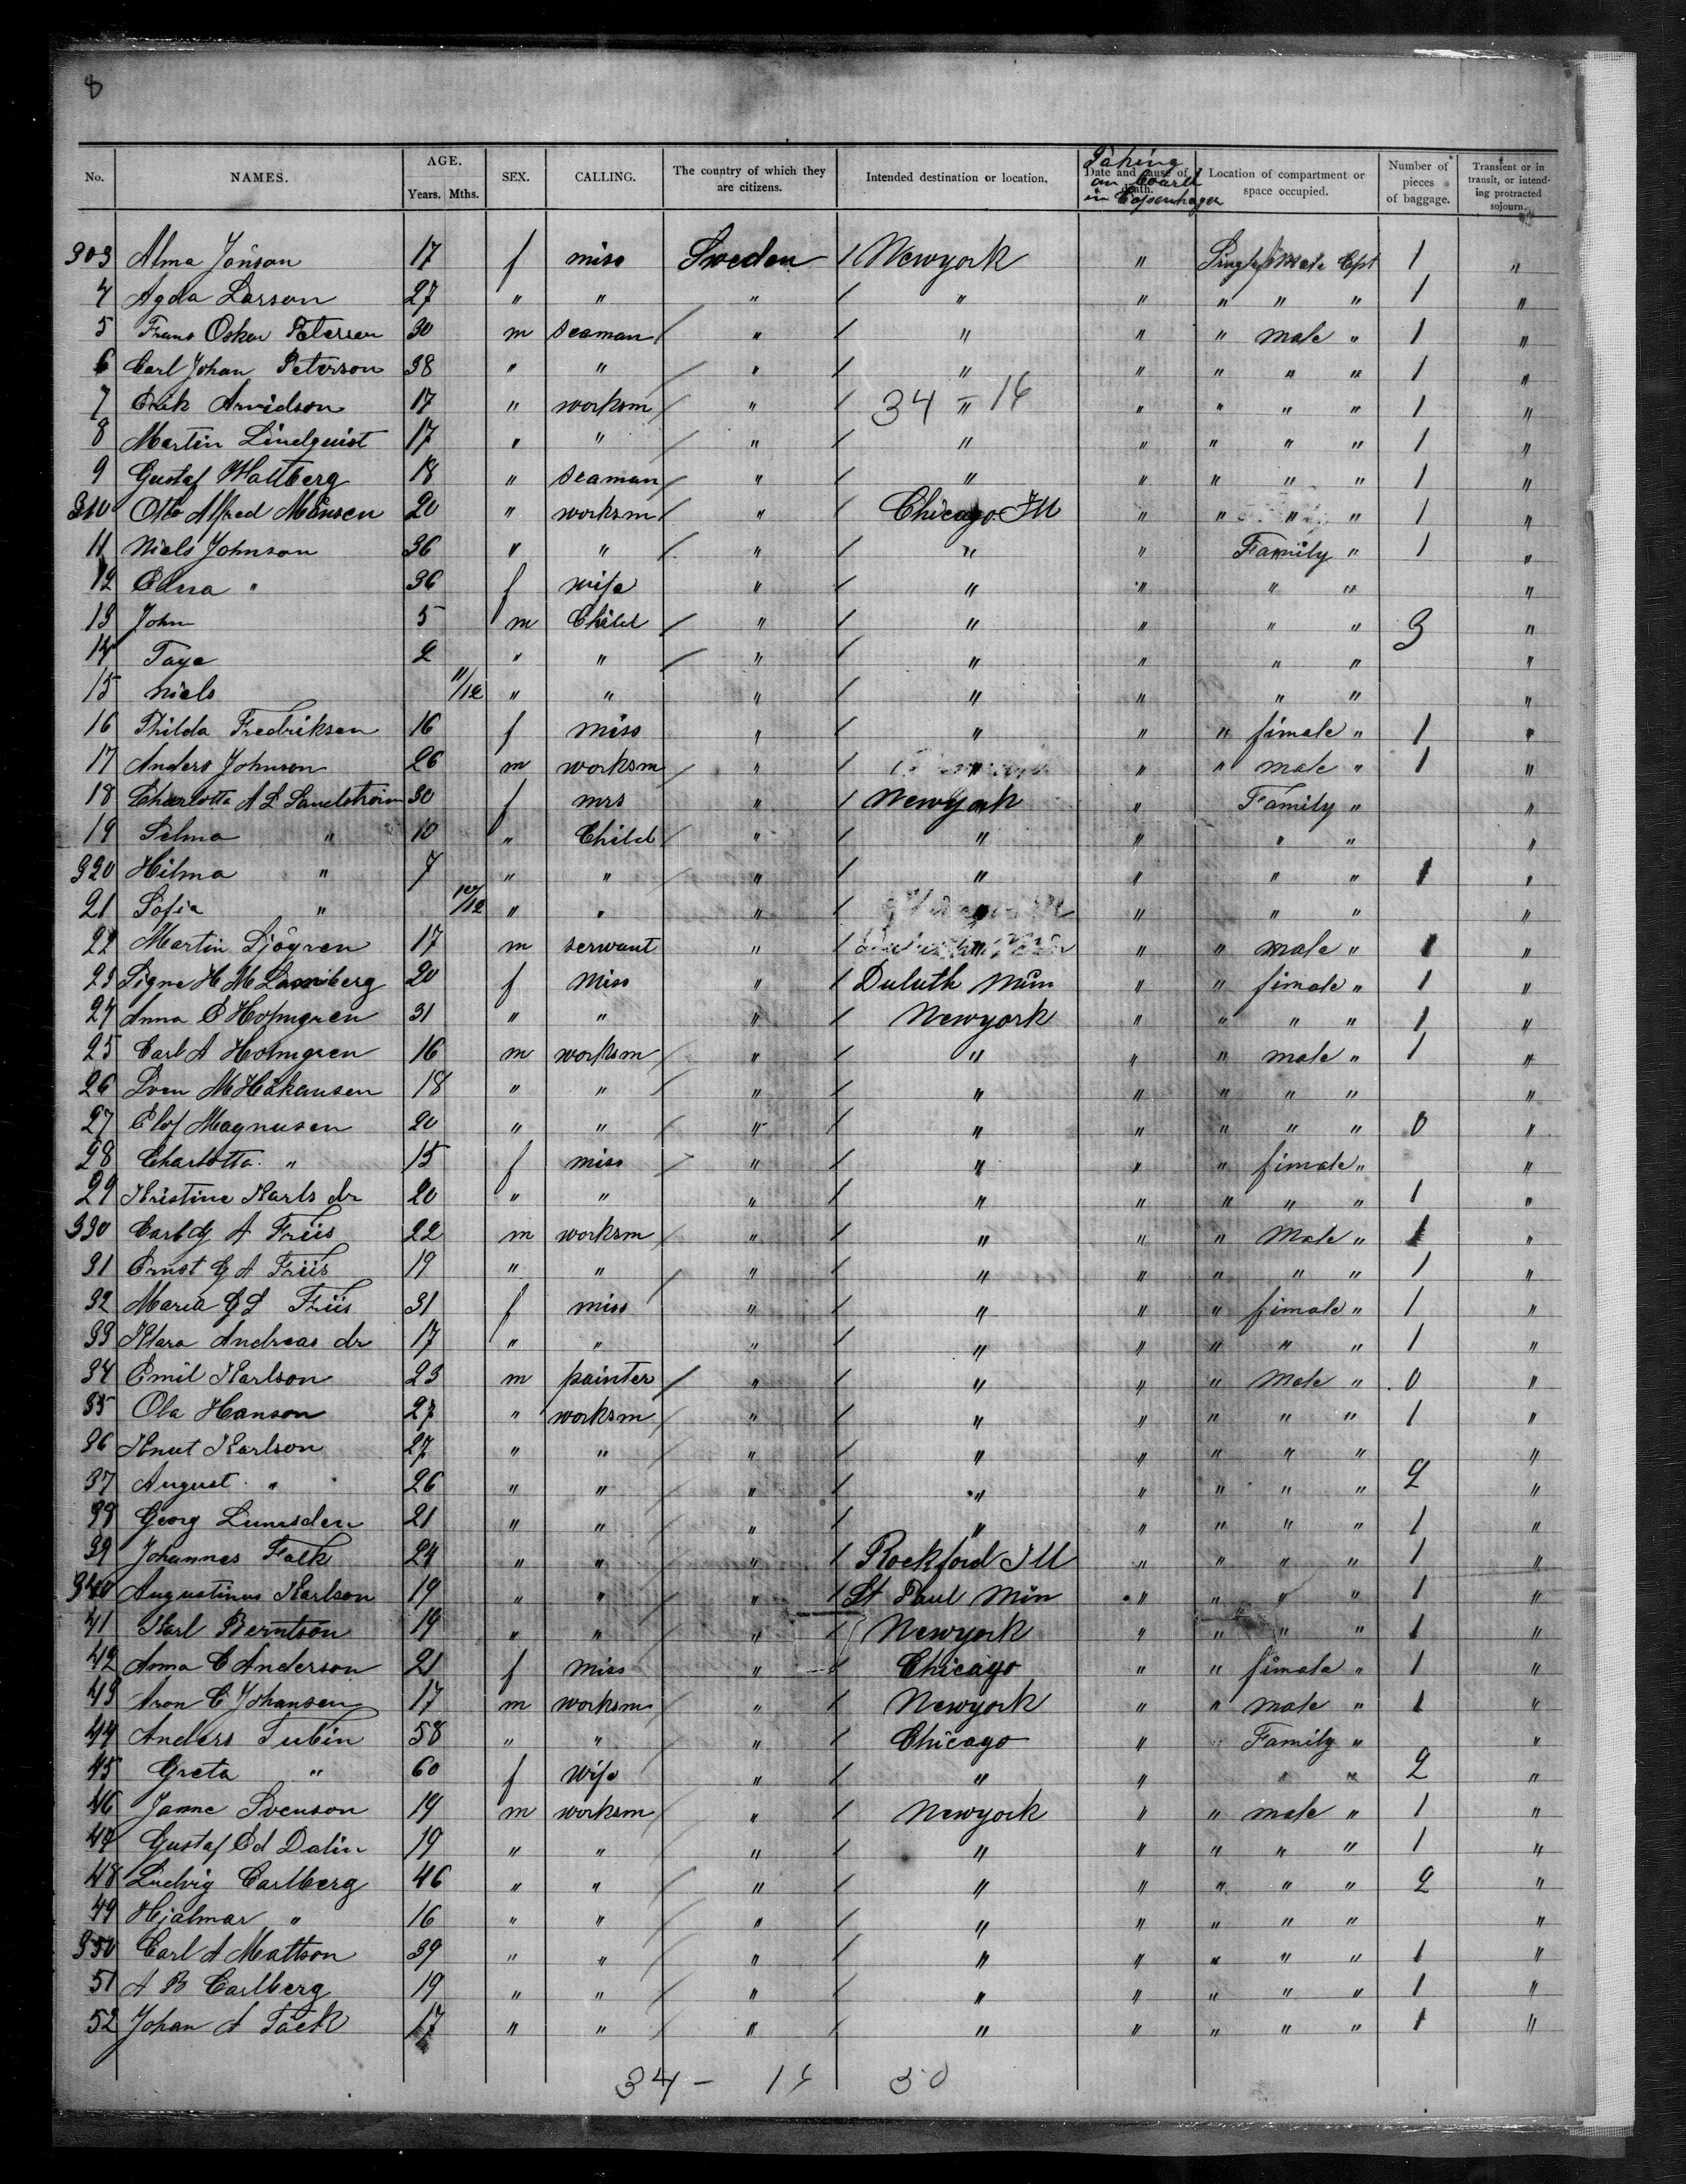 8
No. NAMES. AGE. Years. Mths. SEX. CALLING. The country of which they are citizens. Intended destination or location. Date and cause of death. Taking on board in Copenhagen Location of compartment or space occupied. Number of pieces of baggage. Transient or in transit, or intending protracted sojourn.
303 Alma Jönson 17 f miss Sweden / Newyork " Single fimale Cpt 1 "
4 Agda Larson 27 " " " / " " " " " 1 "
5 Frans Oskar Petersen 30 m seaman / " / " " " male " 1 "
6 Carl Johan Peterson 38 " " / " / " " " " " 1 "
7 Erik Arvidson 17 " worksm " / 34 " 16 " " " " 1 "
8 Martin Lindquist 17 " " / " / " " " " " 1 "
9 Gustaf Wallberg 18 " seaman / " / " " " " " 1 "
310 Otto Alfred Månsen 20 " worksm / " / Chicago Ill " " " " 1 "
11 Niels Johnson 36 " " / " / " " Family " 1 "
12 Edna " 36 f wife " / " " " " "
13 John 5 m Child / " / " " " " 3 "
14 Taye 2 " " / " / " " " " "
15 Niels 11/12 " " " / " " " " "
16 Thilda Fredriksen 16 f miss " / " " " fimale " 1 "
17 Anders Johnson 26 m worksm / " / " " " male " 1 "
18 Charlotta A L Sandström 30 f mrs " / Newyork " Family " "
19 Selma " 10 " Child / " / " " " " "
320 Hilma " 7 " " / " / " " " " 1 "
21 Sofia " 10/12 " " " / " " " " "
22 Martin Sjögren 17 m servant " / " " " male " 1 "
23 Signe H M 20 f Miss " / Duluth Minn " " fimale " 1 "
24 Anna E Holmgren 31 " " " / Newyork " " " " 1 "
25 Carl A Holmgren 16 m worksm / " / " " " male " 1 "
26 Sven M Håkansen 18 " " / " / " " " " " "
27 Elof Magnusen 20 " " / " / " " " " " 0 "
28 Charlotta " 15 f miss / " / " " " fimale " "
29 Kristine Karls dr 20 " " " / " " " " " 1 "
330 Carl G A Friis 22 m worksm / " / " " " Male " 1 "
31 Ernst G A Friis 19 " " / " / " " " " " 1 "
32 Maria G S Friis 31 f miss " / " " " fimale " 1 "
33 Klara Andreas dr 17 " " " / " " " " " 1 "
34 Emil Karlson 23 m painter / " / " " " Male " 0 "
35 Ola Hanson 27 " worksm / " / " " " " " 1 "
36 Knut Karlson 27 " " / " / " " " " " "
37 August " 26 " " / " / " " " " " 2 "
38 Georg Lumsden 21 " " / " / " " " " " 1 "
39 Johannes Falk 24 " " / " / Rockford Ill " " " " 1 "
340 Augustinus Karlson 19 " " / " / St Paul Min " " " " 1 "
41 Karl Berntson 19 " " / " / Newyork " " " " 1 "
42 Anna C Anderson 21 f miss " / Chicago " " fimale " 1 "
43 Aron C Johansen 17 m worksm / " / Newyork " " male " 1 "
44 Anders Tubin 58 " " / " / Chicago " " Family " "
45 Greta " 60 f wife " / " " " " 2 "
46 Janne Svenson 19 m worksm / " / Newyork " " male " 1 "
47 Gustaf Ed Dalin 19 " " / " / " " " " " 1 "
48 Ludvig Carlberg 46 " " / " / " " " " " 2 "
49 Hjalmar " 16 " " / " / " " " " " "
350 Carl A Mattson 39 " " / " / " " " " " 1 "
51 A B Carlberg 19 " " / " / " " " " " 1 "
52 Johan A Täck 17 " " / " / " " " " " 1 "
34 - 30